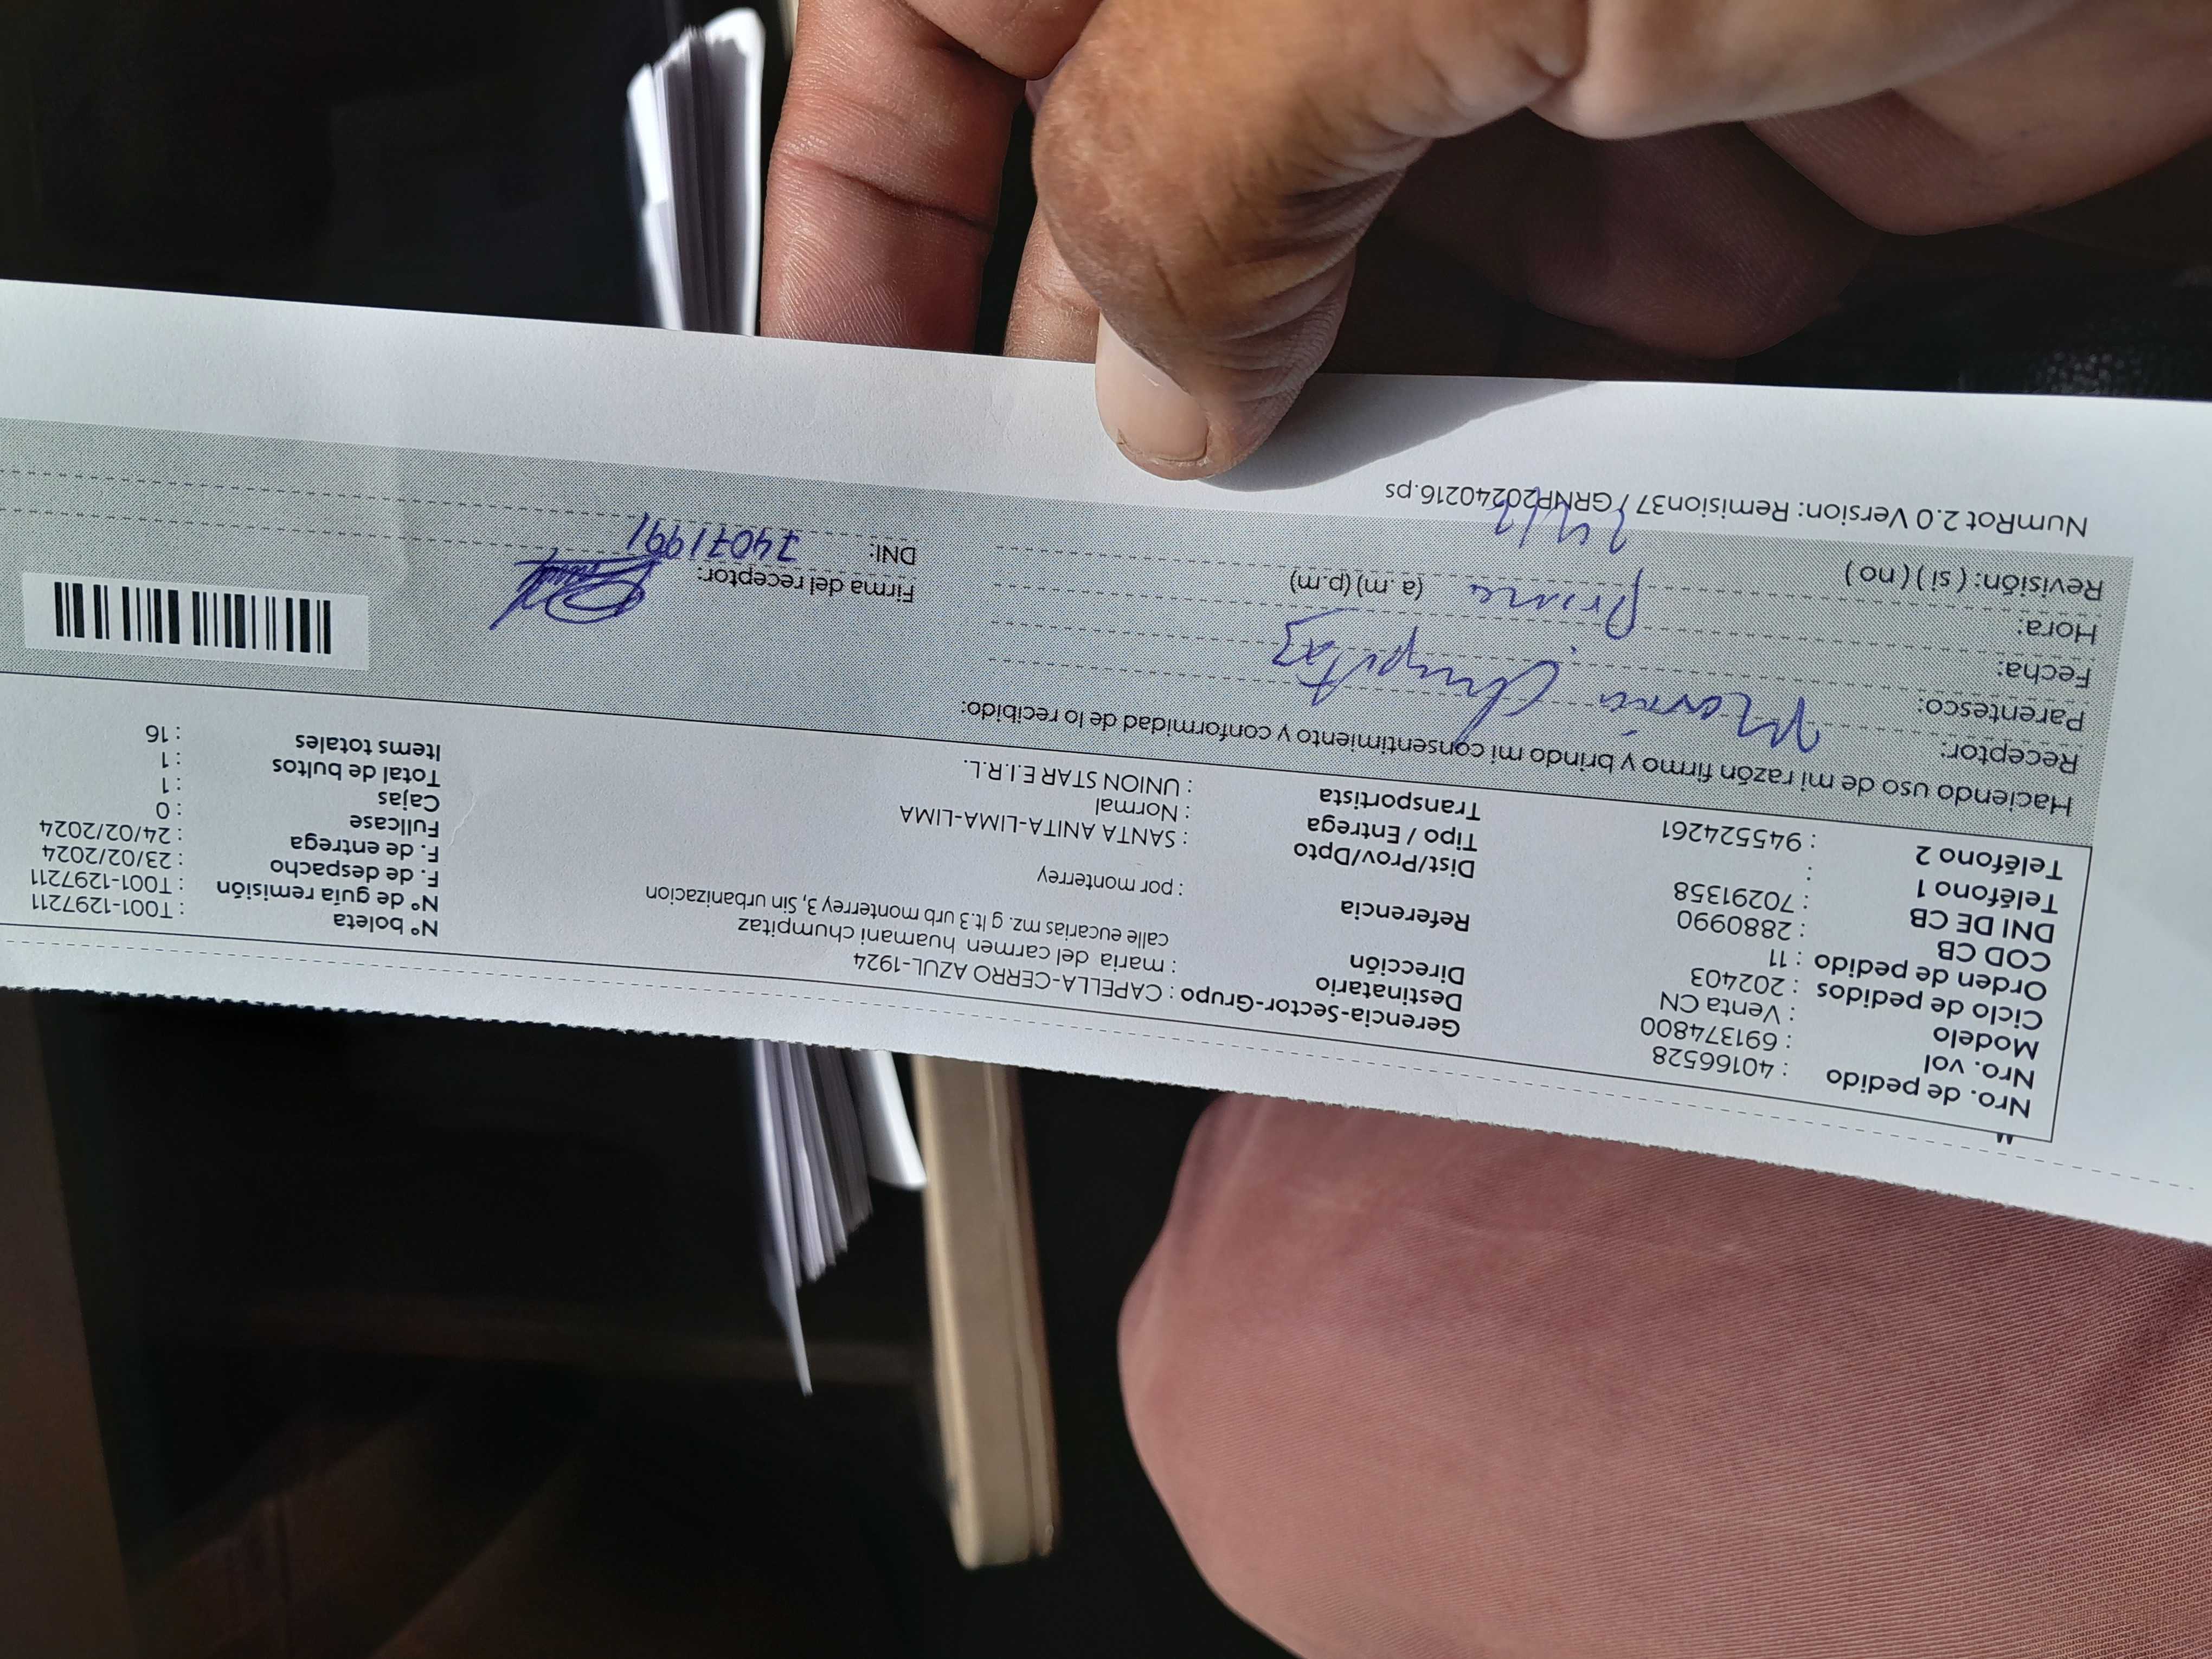 Nro. de pedido : 40166528
Nro. vol : 691374800
Modelo : Venta CN
Ciclo de pedidos : 202403
Orden de pedido : 11
COD CB : 2880990
DNI DE CB : 70291358
Teléfono 1 :
Teléfono 2 : 945524261
Gerencia-Sector-Grupo : CAPELLA-CERRO AZUL-1924
Destinatario : maria del carmen huamani chumpitaz
Dirección calle eucarias mz. g lt.3 urb monterrey 3, Sin urbanizacion
Referencia : por monterrey
Dist/Prov/Dpto : SANTA ANITA-LIMA-LIMA
Tipo / Entrega : Normal
Transportista : UNION STAR E.I.R.L.
N° boleta : T001-1297211
N° de guía remisión : T001-1297211
F. de despacho : 23/02/2024
F. de entrega : 24/02/2024
Fullcase : 0
Cajas : 1
Total de bultos : 1
Items totales : 16
Haciendo uso de mi razón firmo y brindo mi consentimiento y conformidad de lo recibido:
Receptor: Maria Chumpitaz
Parentesco: Prima
Fecha:
Hora: (a.m) (p.m)
Revisión: ( si ) ( no )
Firma del receptor:
DNI: 74071991
NumRot 2.0 Version: Remision37 / GRNP20240216.ps